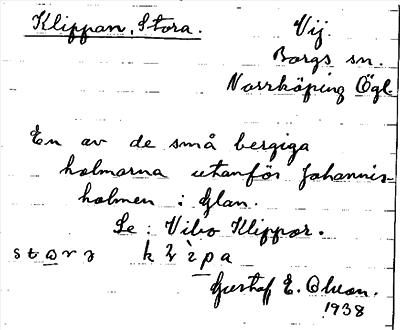 Klippan, Stora.
Vij.
Borgs sn.
Norrköping Ögl
En av de små bergiga
holmarna utanför Johannis-
holmen i Glan.
Se: Vibo Klippor.
Gustaf E. Olson.
1938